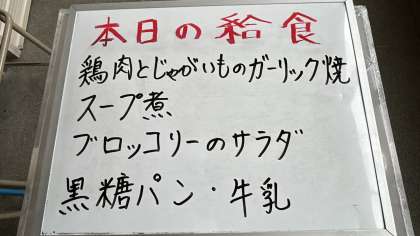 本日の給食
鶏肉とじゃがいものガーリック焼
スープ煮
ブロッコリーのサラダ
黒糖パン・牛乳